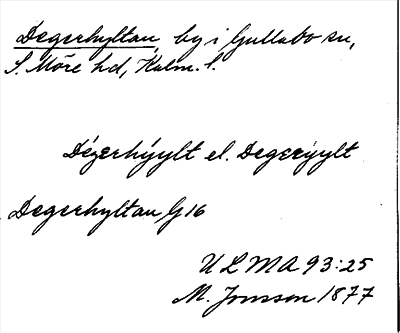 Degerhyltan, by i Gullabo sn,
S. Möre hd, Kalm. l.
Dégerhýylt el. Degerýylt
Degerhyltan, G 16
ULMA 93:25
M. Jonsson 1877